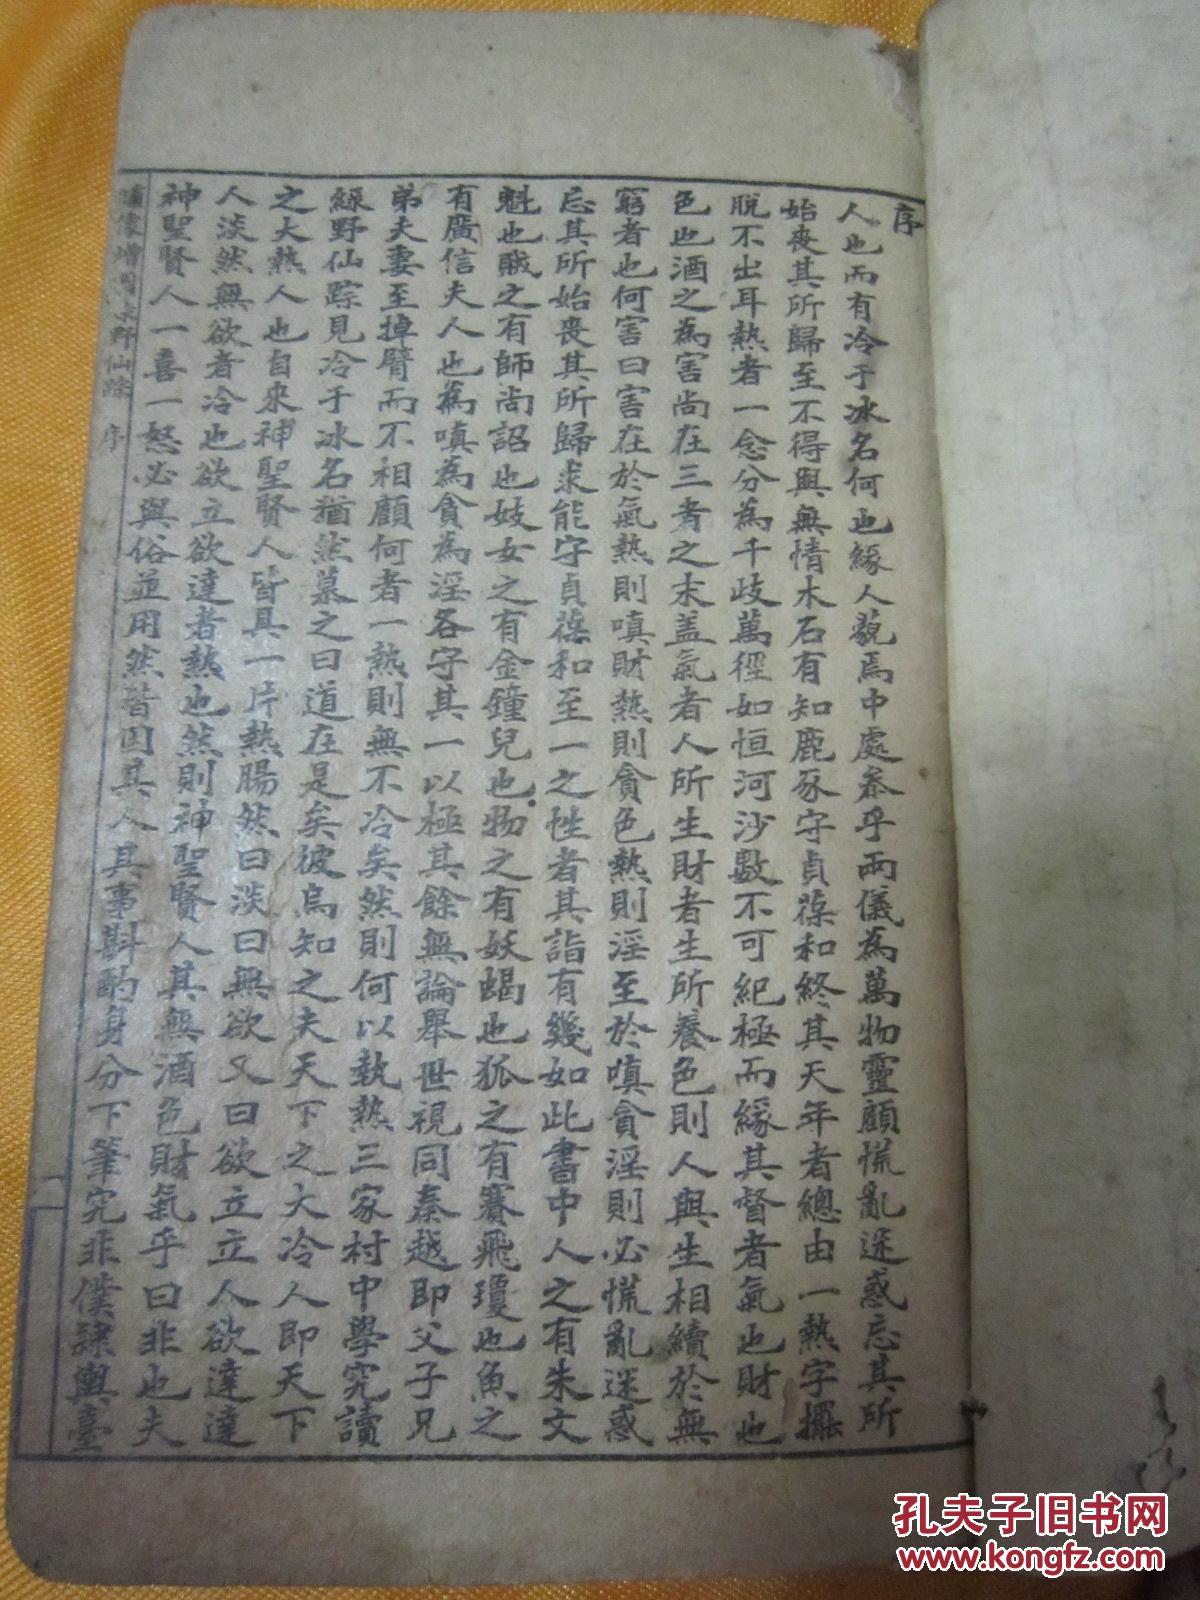 序
人也而有冷于冰名何也緣人藐焉中處參乎兩儀為萬物靈顧慌亂迷惑忘其所
始喪其所歸至不得與無情木石有知鹿豕守貞葆和終其天年者總由一熱字擺
脫不出耳熱者一念分為千歧萬徑如恒河沙數不可紀極而緣其督者氣也財也
色也酒之為害尚在三者之末蓋氣者人所生財者生所養色則人與生相續於無
窮者也何害曰害在於氣熱則嗔財熱則貪色熱則淫至於嗔貪淫則必慌亂迷惑
忘其所始喪其所歸求能守貞葆和至一之性者其詣有幾如此書中人之有朱文
魁也賊之有師尚詔也妓女之有金鐘兒也物之有妖蝎也狐之有賽飛瓊也魚之
有廣信夫人也為嗔為貪為淫各守其一以極其餘無論舉世視同秦越即父子兄
弟夫妻至掉臂而不相顧何者一熱則無不冷矣然則何以執熱三家村中學究讀
綠野仙踪見冷于冰名猶然慕之曰道在是矣彼烏知之夫天下之大冷人即天下
之大熱人也自來神聖賢人皆具一片熱腸然曰淡曰無欲又曰欲立立人欲達達
人淡然無欲者冷也欲立欲達者熱也然則神聖賢人其無酒色財氣乎曰非也夫
神聖賢人一喜一怒必與俗並用然皆因其人其事斟酌身分下筆究非僕隸輿臺
像增野仙踪 序
一
孔夫子旧书网
www.kongfz.com